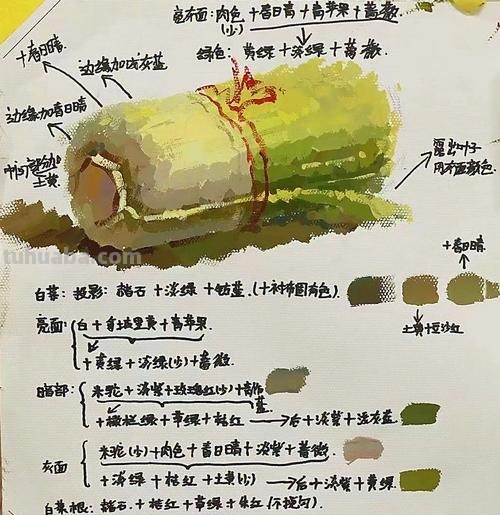 亮灰面：肉色 + 春日晴 + 青苹果 + 蔷薇.
(少)
绿色：黄绿 + 淡绿 + 蔷薇.
+春日晴
边缘加浅灰蓝
边缘加春日晴
中间部加
土黄
露出叶子
用灰面颜色.
tuhuaba.com
+春日晴
白菜：投影：赭石 + 淡绿 + 钴蓝.(+衬布固有色).
土黄+豆沙红
亮面：白 + 那坡里黄 + 青苹果.
+ 黄绿 + 淡绿(少) + 蔷薇.
暗部：朱驼 + 淡紫 + 玫瑰红(少) + 青竹蓝
+ 橄榄绿 + 草绿 + 桔红 → 后 + 淡紫 + 浅灰蓝
灰面 朱驼(少) + 肉色 + 春日晴 + 淡紫 + 蔷薇.
+ 淡绿 + 桔红 + 土黄(少) → 后 + 淡紫 + 黄绿.
白菜根：赭石. + 桔红 + 草绿 + 朱红 (不搅匀).